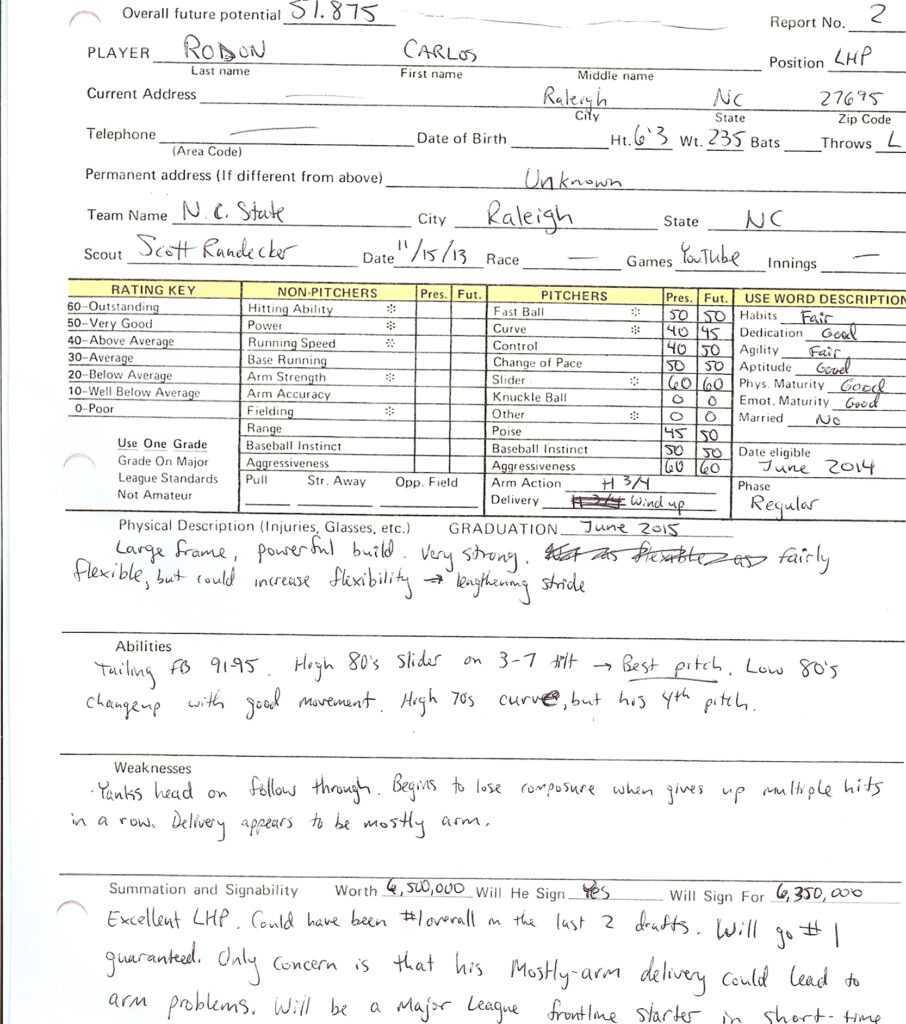 Overall future potential 51.875
Report No. 2
PLAYER RODON CARLOS Position LHP
Last name First name Middle name
Current Address — Raleigh NC 27695
City State Zip Code
Telephone — Date of Birth Ht. 6'3 Wt. 235 Bats Throws L
(Area Code)
Permanent address (If different from above) Unknown
Team Name N.C. State City Raleigh State NC
Scout Scott Randecker Date 11/15/13 Race — Games YouTube Innings —
RATING KEY NON-PITCHERS Pres. Fut. PITCHERS Pres. Fut. USE WORD DESCRIPTION
60-Outstanding Hitting Ability ※ Fast Ball ※ 50 50 Habits Fair
50-Very Good Power ※ Curve ※ 40 45 Dedication Good
40-Above Average Running Speed ※ Control 40 50 Agility Fair
30-Average Base Running Change of Pace 50 50 Aptitude Good
20-Below Average Arm Strength ※ Slider ※ 60 60 Phys. Maturity Good
10-Well Below Average Arm Accuracy Knuckle Ball 0 0 Emot. Maturity Good
0-Poor Fielding ※ Other ※ 0 0 Married No
Range Poise 45 50
Use One Grade Baseball Instinct Baseball Instinct 50 50 Date eligible
Grade On Major Aggressiveness Aggressiveness 60 60 June 2014
League Standards Pull Str. Away Opp. Field Arm Action H 3/4 Phase
Not Amateur Delivery H 3/4 Wind up Regular
Physical Description (Injuries, Glasses, etc.) GRADUATION June 2015
Large frame, powerful build. Very strong. Not as flexible as fairly
flexible, but could increase flexibility → lengthening stride
Abilities
Tailing FB 91-95. High 80's slider on 3-7 tilt → Best pitch. Low 80's
changeup with good movement. High 70s curve, but his 4th pitch.
Weaknesses
Yanks head on follow through. Begins to lose composure when gives up multiple hits
in a row. Delivery appears to be mostly arm.
Summation and Signability Worth 6,500,000 Will He Sign Yes Will Sign For 6,350,000
Excellent LHP. Could have been #1 overall in the last 2 drafts. Will go #1
guaranteed. Only concern is that his mostly-arm delivery could lead to
arm problems. Will be a Major League frontline starter in short-time